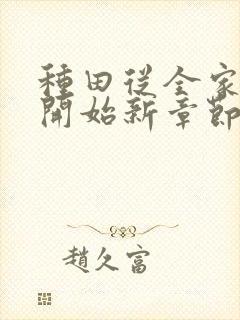 種田從全家
開始新章節
趙久富